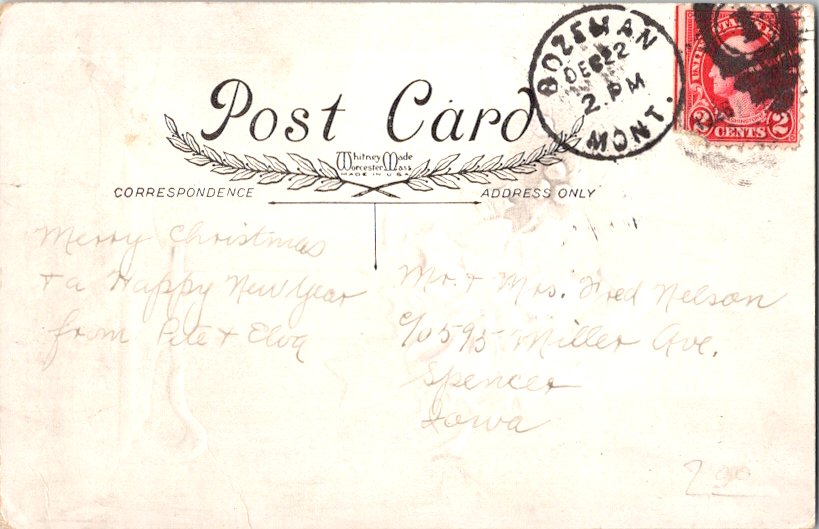 BOZEMAN
DEC 22
2 PM
MONT.
2 CENTS 2
Post Card
Whitney Made
Worcester Mass
MADE IN U.S.A.
CORRESPONDENCE
ADDRESS ONLY
Merry Christmas
+ a Happy New Year
from Pete + Elva
Mr. + Mrs. Fred Nelson
c/o 595 Miller Ave.
Spencer
Iowa
2.00